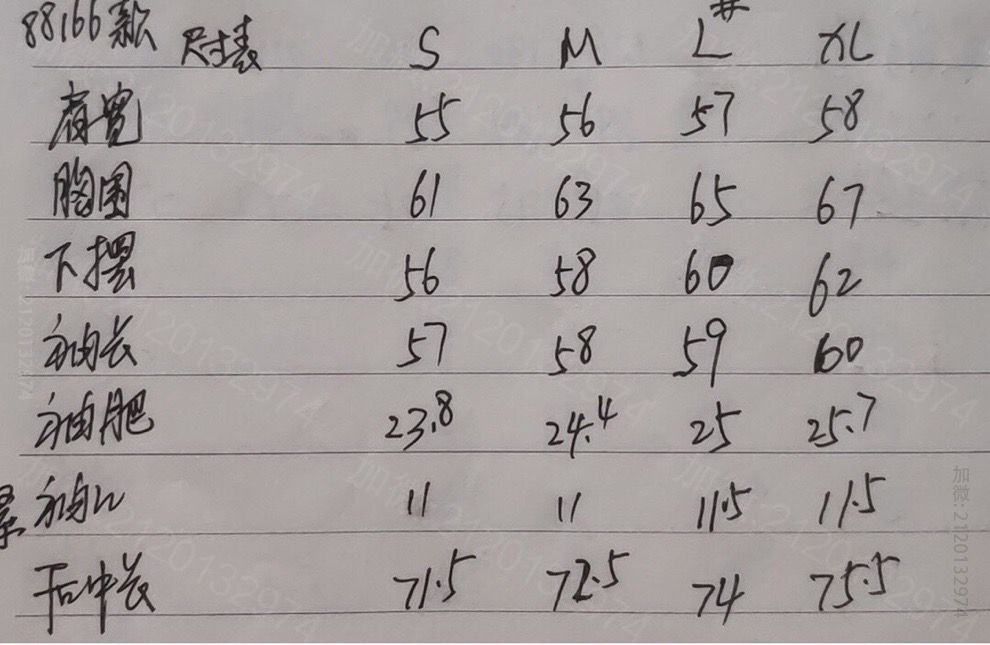 88166款 尺寸表 S M L# XL
肩宽 55 56 57 58
胸围 61 63 65 67
下摆 56 58 60 62
袖长 57 58 59 60
袖肥 23.8 24.4 25 25.7
袖口 11 11 11.5 11.5
后中长 71.5 72.5 74 75.5
加微:2120132974